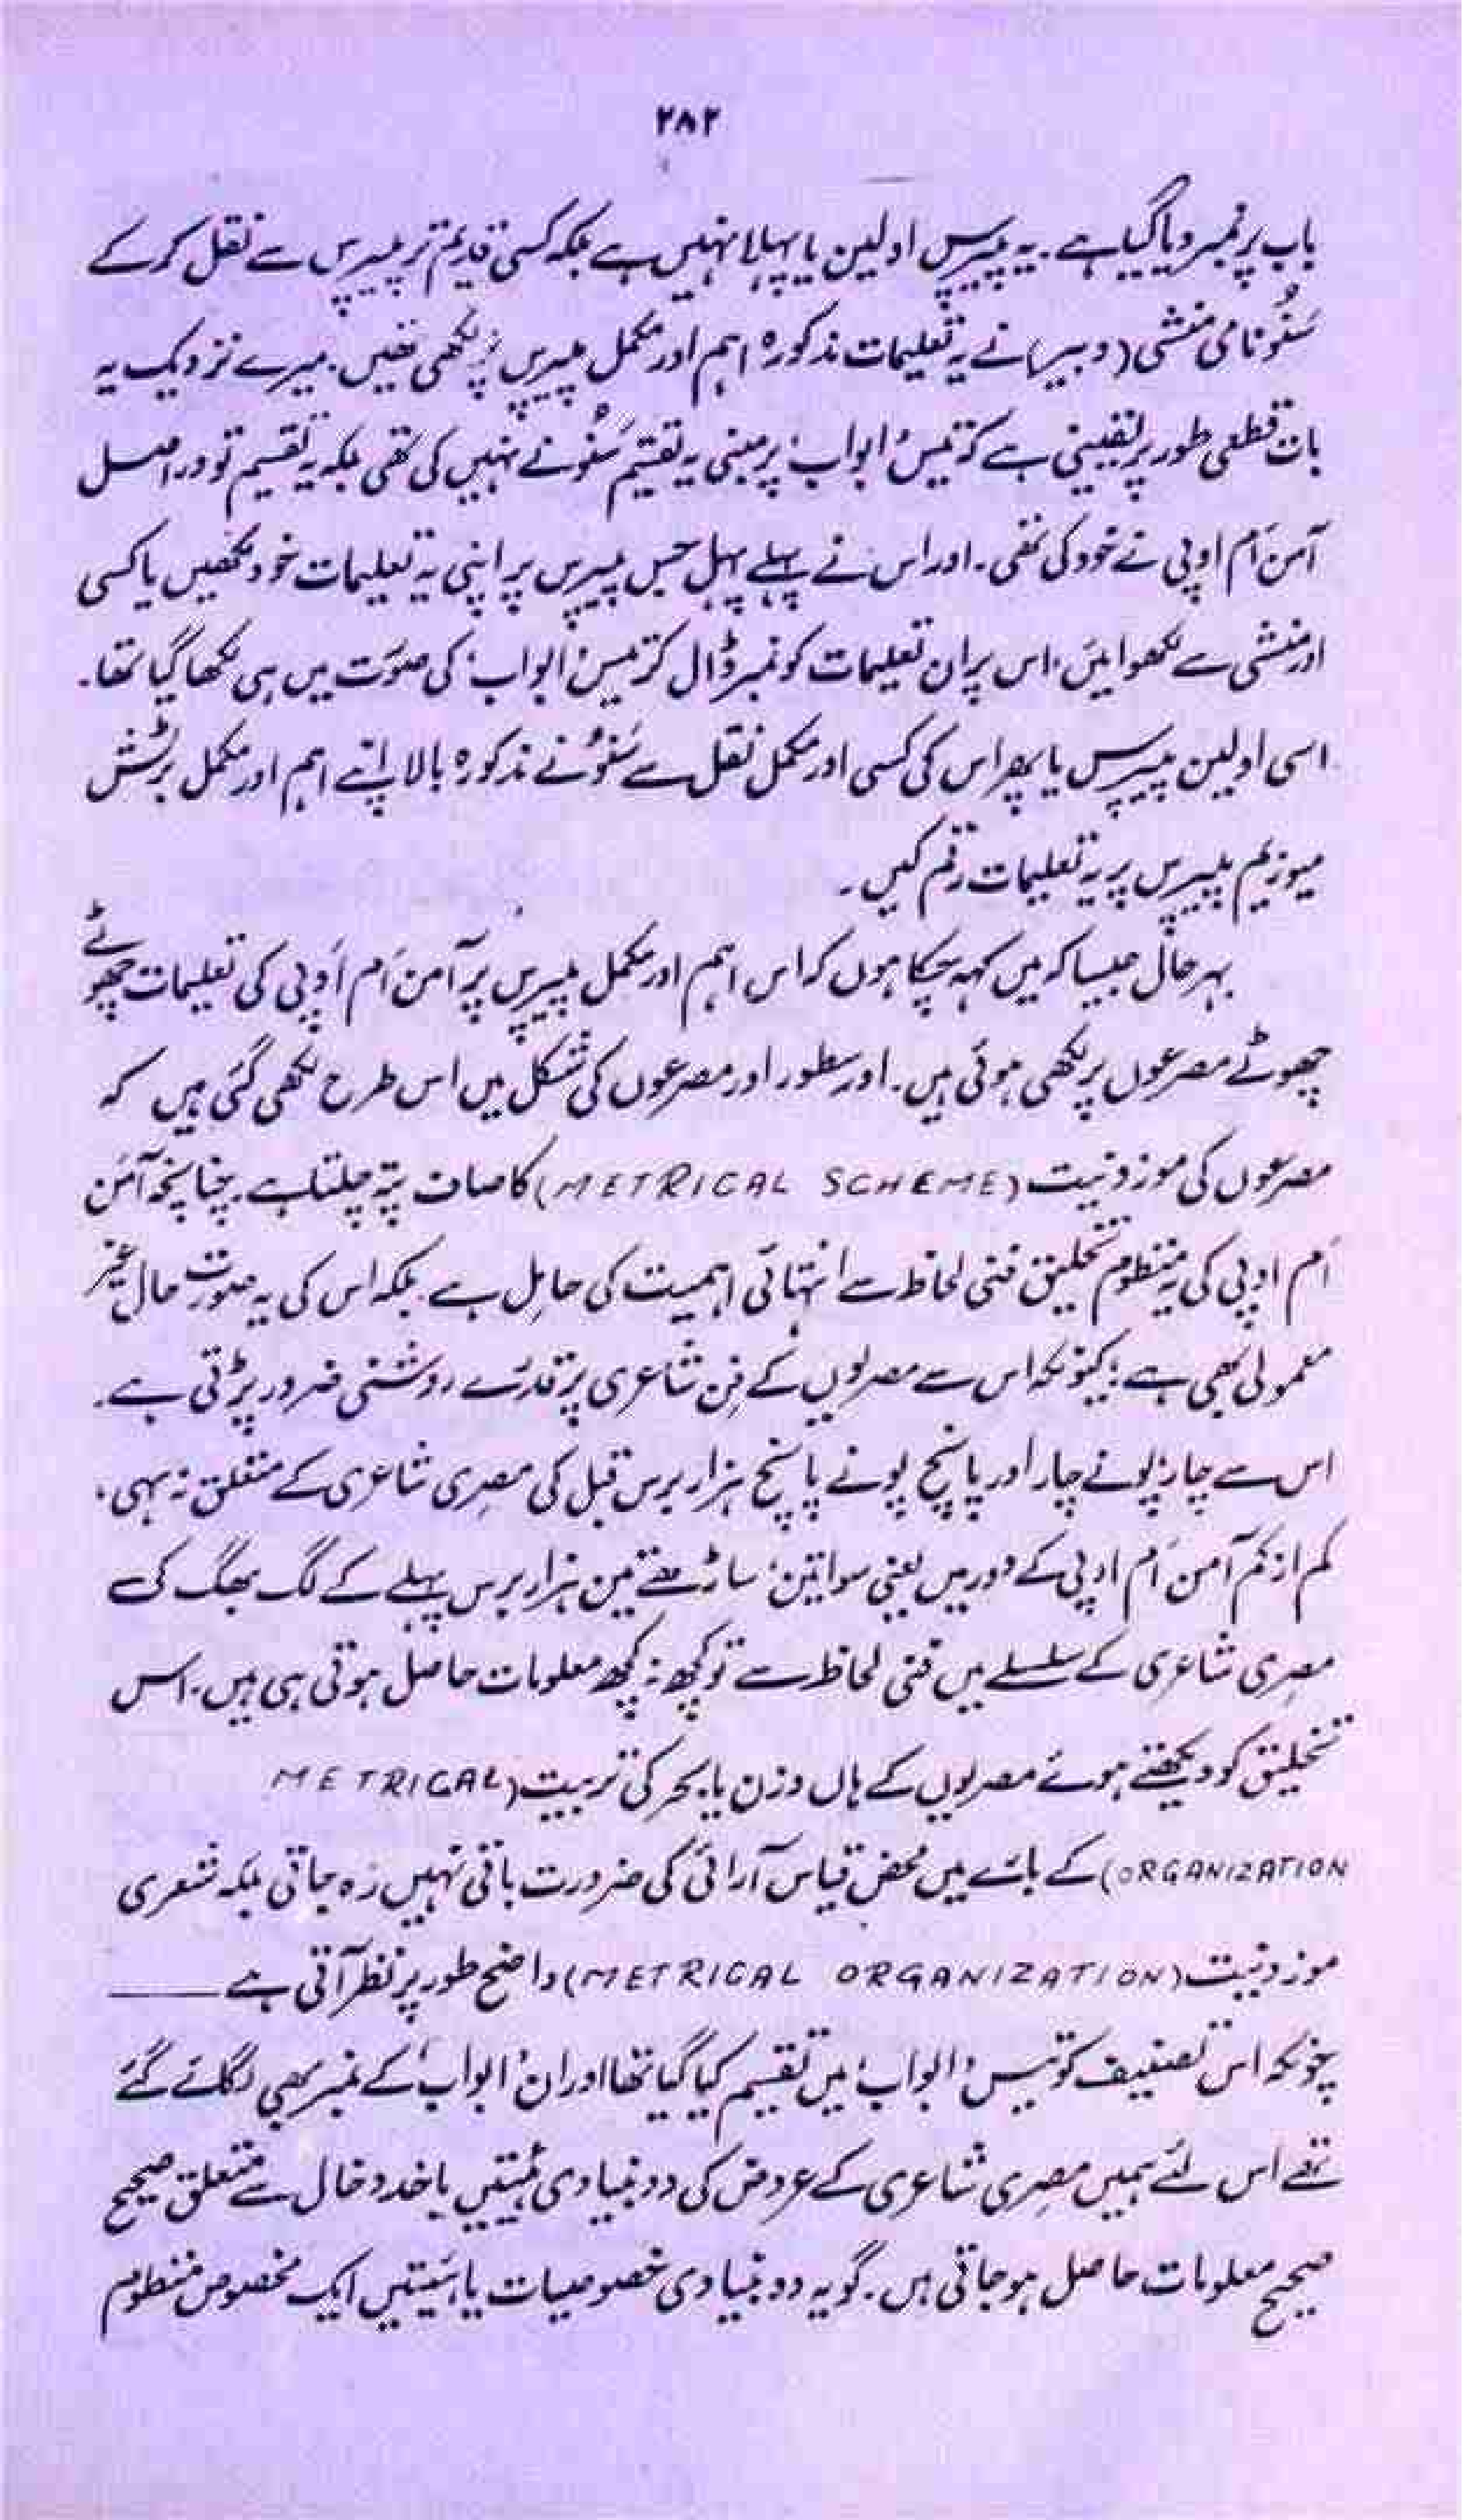 ۲۸۲
باب پر نمبر دیا گیا ہے۔ یہ پیپرس اولین یا پہلا نہیں ہے بلکہ کسی قدیم تر پیپرس سے نقل کر کے
سَنُو نامی منشی (دبیر) نے یہ تعلیمات مذکورہ اہم اور مکمل پیپرس پر لکھی تھیں۔ میرے نزدیک یہ
بات قطعی طور پر یقینی ہے کہ تیس ’ابواب‘ پر مبنی یہ تقسیم سَنُو نے نہیں کی تھی بلکہ یہ تقسیم تو دراصل
آمن اَم اوپی نے خود کی تھی۔ اور اس نے پہلے پہل جس پیپرس پر اپنی یہ تعلیمات خود لکھیں یا کسی
اور منشی سے لکھوائیں، اس پر ان تعلیمات کو نمبر ڈال کر تیس ’ابواب‘ کی صورت میں ہی لکھا گیا تھا۔
اسی اولین پیپرس یا پھر اس کی کسی اور مکمل نقل سے سَنُو نے مذکورہ بالا اپنے اہم اور مکمل برٹش
میوزیم پیپرس پر یہ تعلیمات رقم کیں۔
بہرحال جیسا کہ میں کہہ چکا ہوں کہ اس اہم اور مکمل پیپرس پر آمن اَم اَوپی کی تعلیمات چھوٹے
چھوٹے مصرعوں پر لکھی ہوئی ہیں۔ اور سطور اور مصرعوں کی شکل میں اس طرح لکھی گئی ہیں کہ
مصرعوں کی موزونیت (METRICAL SCHEME) کا صاف پتہ چلتا ہے۔ چنانچہ آمن
اَم اوپی کی یہ منظوم تخلیق فنی لحاظ سے انتہائی اہمیت کی حامِل ہے بلکہ اس کی یہ صورت حال غیر
معمولی بھی ہے؛ کیونکہ اس سے مصریوں کے فنِ شاعری پر قدرے روشنی ضرور پڑتی ہے۔
اس سے چار، پونے چار اور پانچ پونے پانچ ہزار برس قبل کی مصری شاعری کے متعلق نہ سہی،
کم از کم آمن اَم اوپی کے دور میں یعنی سوا تین، ساڑھے تین ہزار برس پہلے کے لگ بھگ کی
مصری شاعری کے سلسلے میں فنی لحاظ سے تو کچھ نہ کچھ معلومات حاصل ہوتی ہی ہیں۔ اس
تخلیق کو دیکھتے ہوئے مصریوں کے ہاں وزن یا بحر کی تربیت (METRICAL
ORGANIZATION) کے بارے میں محض قیاس آرائی کی ضرورت باقی نہیں رہ جاتی بلکہ شعری
موزونیت (METRICAL ORGANIZATION) واضح طور پر نظر آتی ہے ——
چونکہ اس تصنیف کو تیس ’ابواب‘ میں تقسیم کیا گیا تھا اور ان ’ابواب‘ کے نمبر بھی لگائے گئے
تھے اس لئے ہمیں مصری شاعری کے عروض کی دو بنیادی ہئیتیں یا خد و خال سے متعلق صحیح
صحیح معلومات حاصل ہو جاتی ہیں۔ گو یہ دو بنیادی خصوصیات یا ہئیتیں ایک مخصوص منظوم